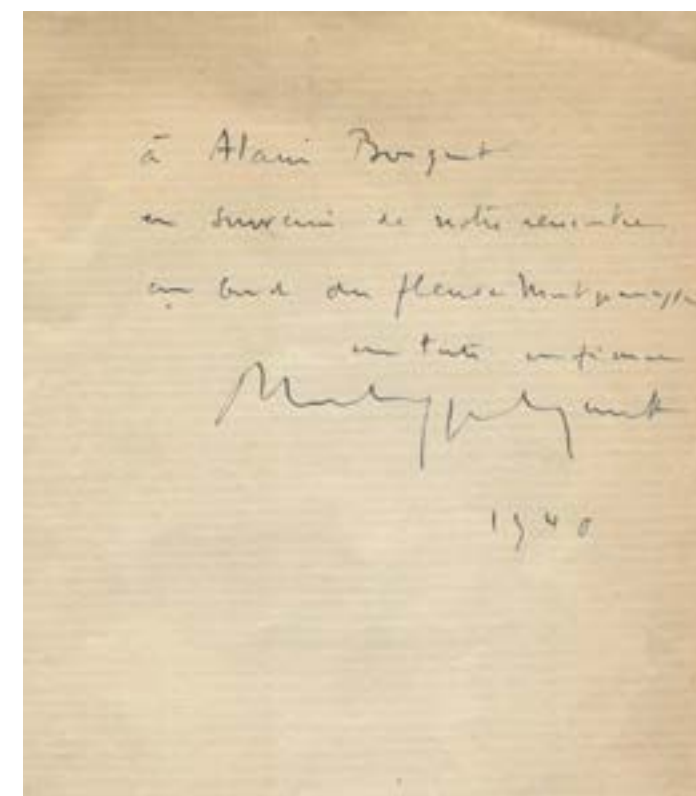 à Alain Bosquet
en souvenir de notre rencontre
au bord du fleuve Montparnasse
en toute confiance
1940